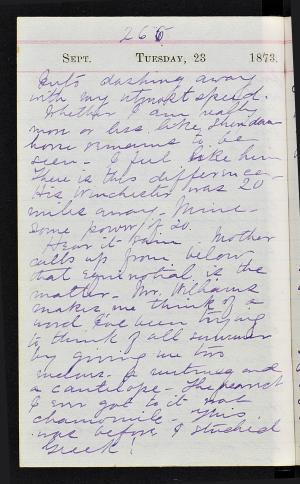 266
SEPT. TUESDAY, 23 1873.
Puts dashing away
with my utmost speed.
Whether I am really
more or less like Sheridans
horse remains to be
seen - I feel like him
There is this difference -
His Winchester was 20
miles away - Mine -
some power of 20.
Hear it rain. Mother
calls up from below
that equinoctial is the
matter - Mr. Williams
makes me think of a
word I've been trying
to think of all summer
by giving me two
melons - a nutmeg and
a cantelope - The nearest
I ever got to it was
chamomile - This
was before I studied
Greek!